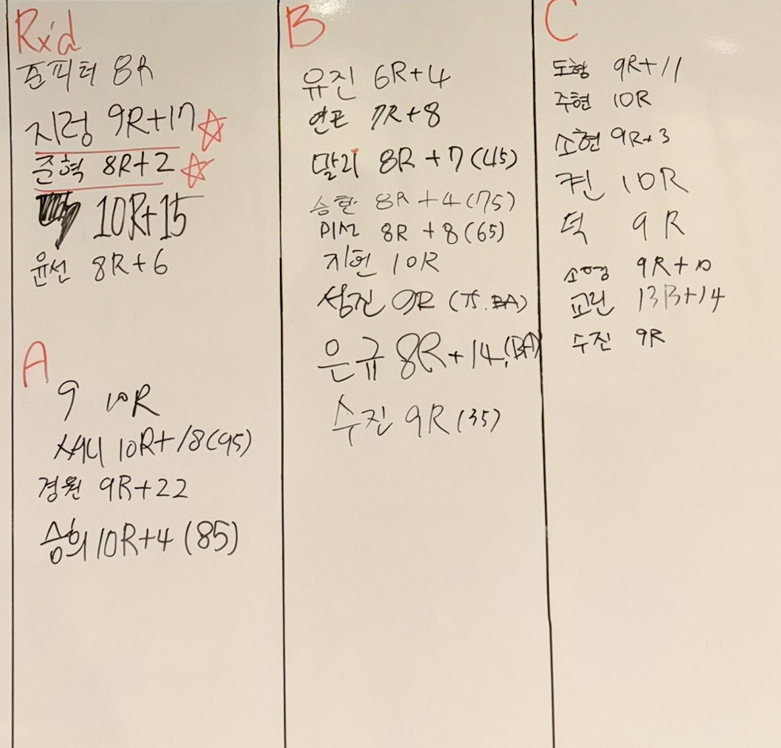 Rx'd
준피터 8R
지렁 9R+17
준혁 8R+2
10R+15
윤선 8R+6
A
9 10R
써니 10R+18(95)
경원 9R+22
승희 10R+4 (85)
B
유진 6R+4
7R+8
말리 8R+7(45)
승환 8R+4(75)
8R+8(65)
지현 10R
성진 9R (75.BA)
은규 8R+14.(BA)
수진 9R (35)
C
도형 9R+11
주현 10R
소현 9R+3
퀸 10R
덕 9R
소영 9R+10
교린 13R+14
수진 9R